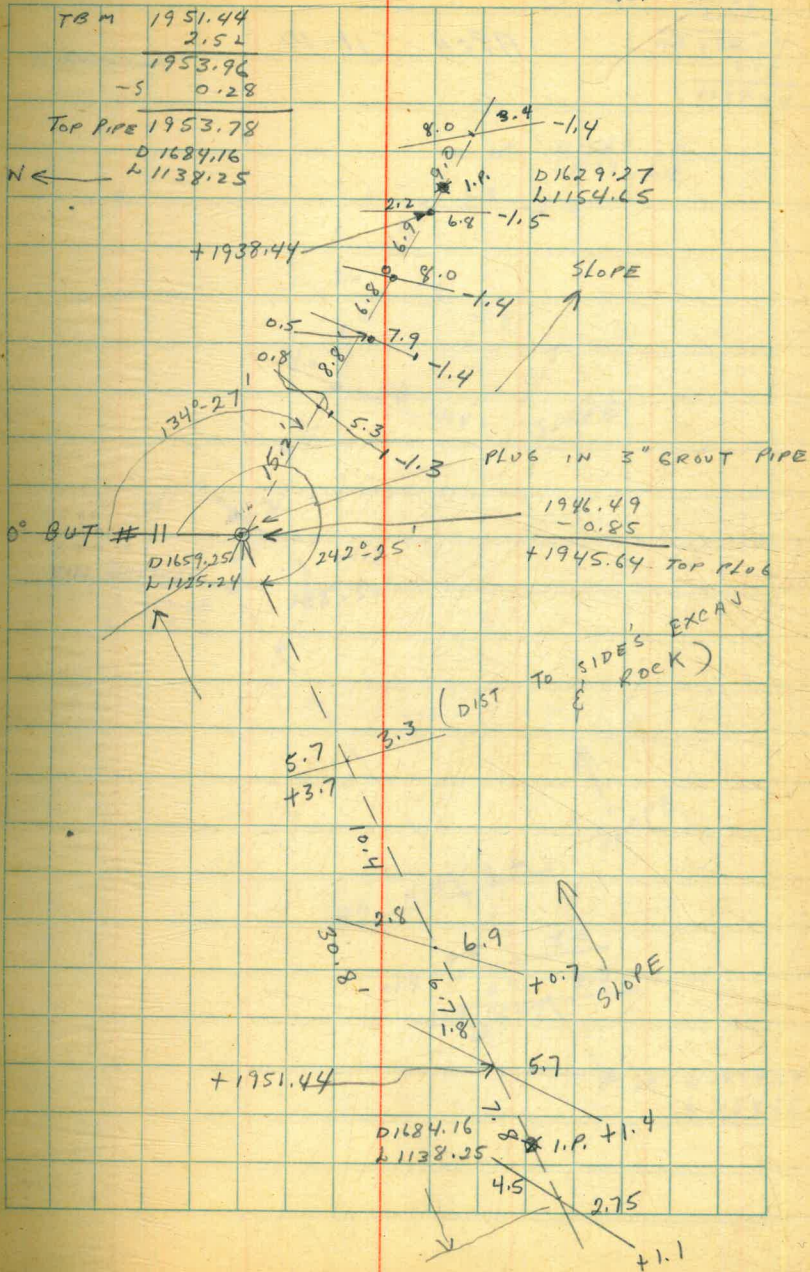 TBM 1951.44
2.52
1953.96
-S 0.28
TOP PIPE 1953.78
D1684.16
L1138.25
N
8.0 3.4 -1.4
9.0
I.P.
D1629.27
L1154.65
2.2
6.8 -1.5
6.9
+1938.44
8.0
-1.4
SLOPE
6.8
0.5
7.9
-1.4
8.8'
0.8
134°-27'
5.3
-1.3
15.2'
PLUG IN 3" GROUT PIPE
0° BUT # 11
D1659.25
L1125.24
242°-25'
1946.49
-0.85
+1945.64 TOP PLUG
(DIST TO SIDE'S EXCAV
& ROCK)
5.7 3.3
+3.7
10.4
2.8
6.9
+0.7
30.8'
6.7
SLOPE
1.8
5.7
+1.4
+1951.44
7.8
D1684.16
L1138.25
I.P.
4.5
2.75
+1.1